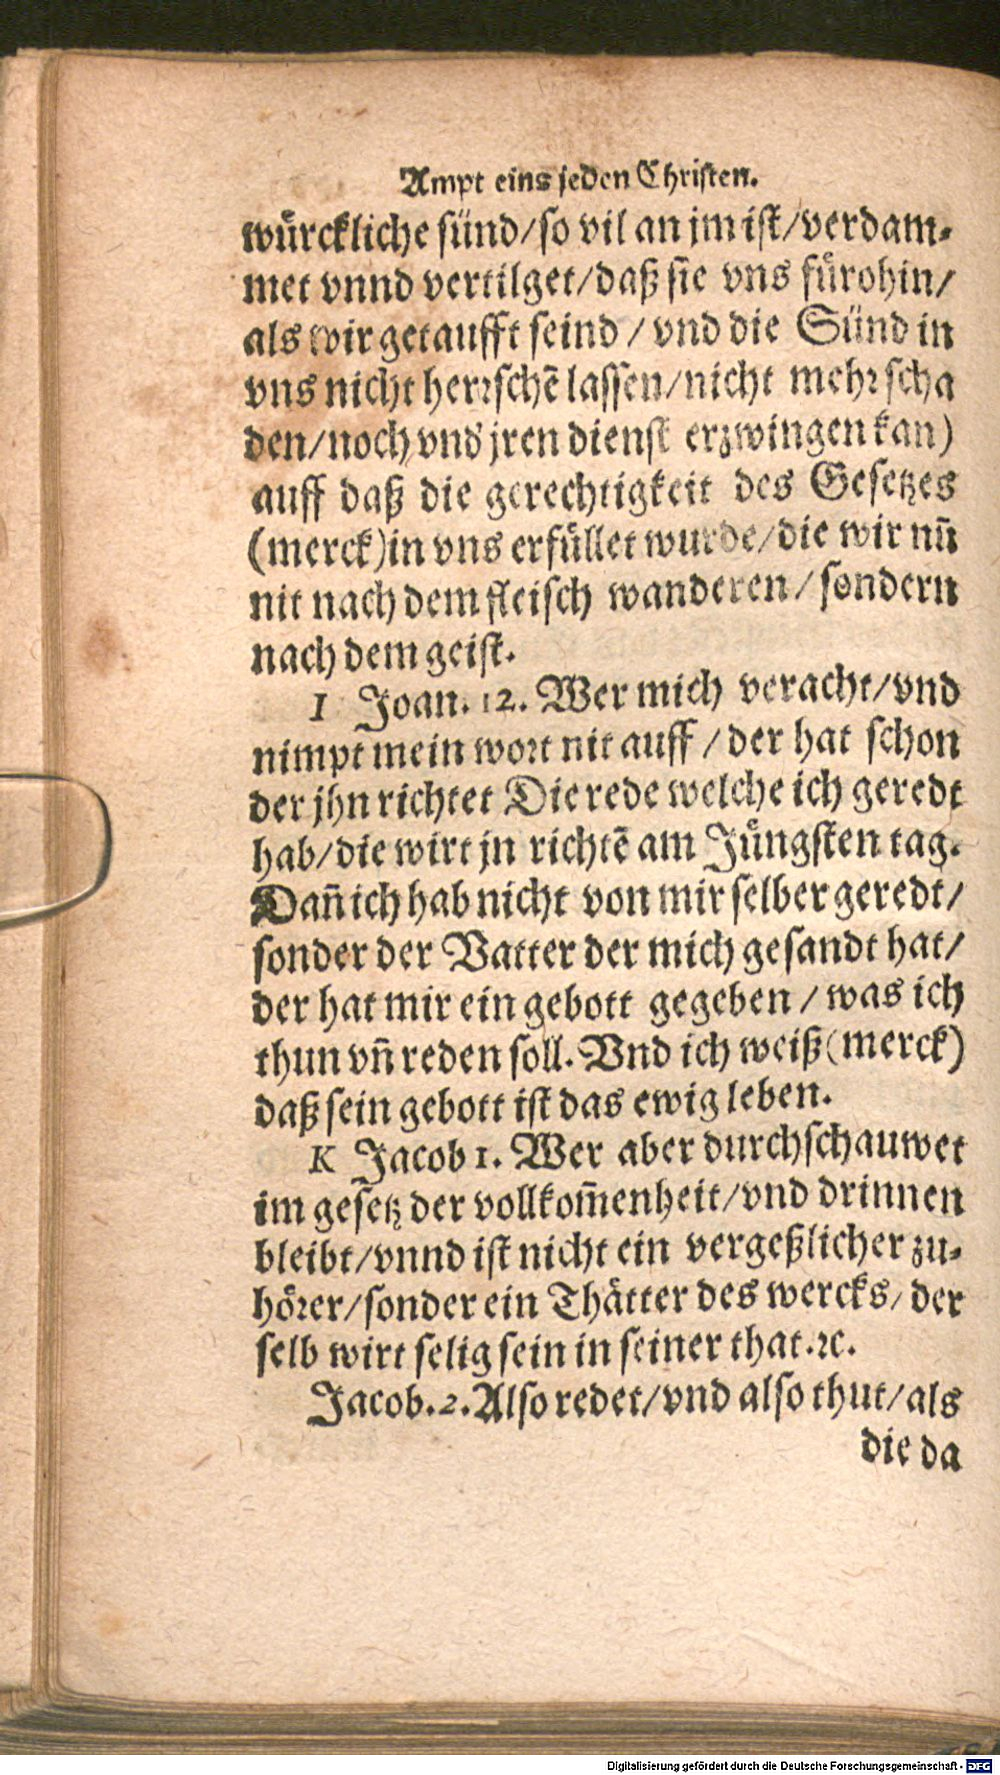 Ampt eins jeden Christen.
wuͤrckliche suͤnd/so vil an jm ist/verdam-
met vnnd vertilget/daß sie vns fuͤrohin/
als wir getaufft seind / vnd die Suͤnd in
vns nicht herrschē lassen/nicht mehr scha
den/noch vns jren dienst erzwingen kan)
auff daß die gerechtigkeit des Gesetzes
(merck)in vns erfuͤllet wurde/die wir nun̄
nit nach dem fleisch wanderen/sondern
nach dem geist.
I Joan. 12. Wer mich veracht/vnd
nimpt mein wort nit auff / der hat schon
der jhn richtet Die rede welche ich geredt
hab/die wirt jn richtē am Juͤngsten tag.
Dan̄ ich hab nicht von mir selber geredt/
sonder der Vatter der mich gesandt hat/
der hat mir ein gebott gegeben / was ich
thun vn̄ reden soll. Vnd ich weiß(merck)
daß sein gebott ist das ewig leben.
K Jacob 1. Wer aber durchschauwet
im gesetz der vollkom̄enheit/vnd drinnen
bleibt/vnnd ist nicht ein vergeßlicher zu-
hoͤrer/sonder ein Thaͤtter des wercks/ der
selb wirt selig sein in seiner that.ꝛc.
Jacob.2.Also redet/vnd also thut/als
die da
Digitalisierung gefördert durch die Deutsche Forschungsgemeinschaft - DFG